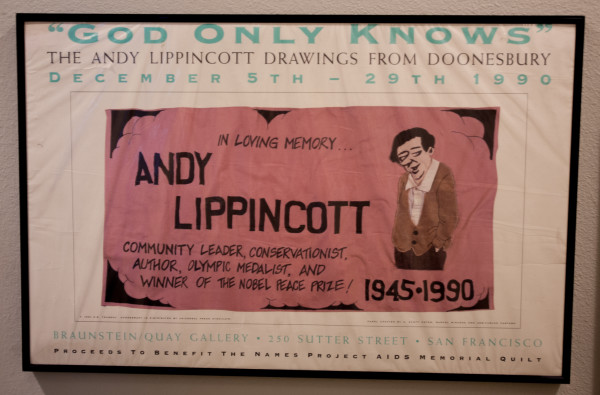 "GOD ONLY KNOWS"
THE ANDY LIPPINCOTT DRAWINGS FROM DOONESBURY
DECEMBER 5TH – 29TH 1990
IN LOVING MEMORY...
ANDY
LIPPINCOTT
COMMUNITY LEADER, CONSERVATIONIST,
AUTHOR, OLYMPIC MEDALIST, AND
WINNER OF THE NOBEL PEACE PRIZE!
1945•1990
BRAUNSTEIN/QUAY GALLERY • 250 SUTTER STREET • SAN FRANCISCO
PROCEEDS TO BENEFIT THE NAMES PROJECT AIDS MEMORIAL QUILT